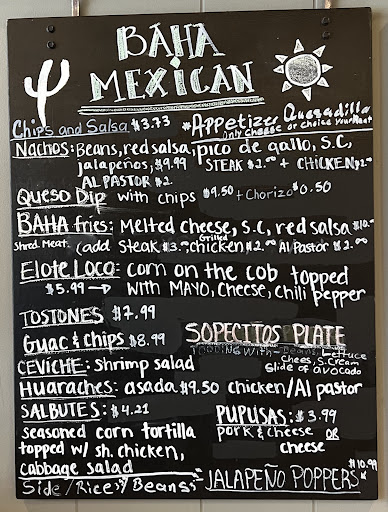 BAHA
MEXICAN
Chips and Salsa $3.73 *Appetizer Quesadilla
only cheese or choice your Meat
Nachos: Beans, red salsa, pico de gallo, S.C,
jalapeños, $9.99 STEAK $2.00 + CHICKEN $2.00
AL PASTOR $2
Queso Dip with chips $9.50 + Chorizo $0.50
BAHA fries: Melted cheese, S.C, red salsa $10.00
Shred. Meat. (add Steak $3.00, Grilled chicken $2.00 Al Pastor $2.00
Elote Loco: corn on the cob topped
$5.99 → with MAYO, Cheese, chili pepper
TOSTONES $7.99
Guac & chips $8.99
SOPECITOS PLATE
TOPPING WITH - Beans, Lettuce
Chees, S.Cream
slide of avocado
CEVICHE: Shrimp salad
Huaraches: asada $9.50 chicken/Al pastor
SALBUTES: $4.21
seasoned corn tortilla
topped w/ sh. chicken,
cabbage salad
PUPUSAS: $3.99
pork & cheese OR
cheese
Side / Rice / Beans
JALAPEÑO POPPERS $10.99